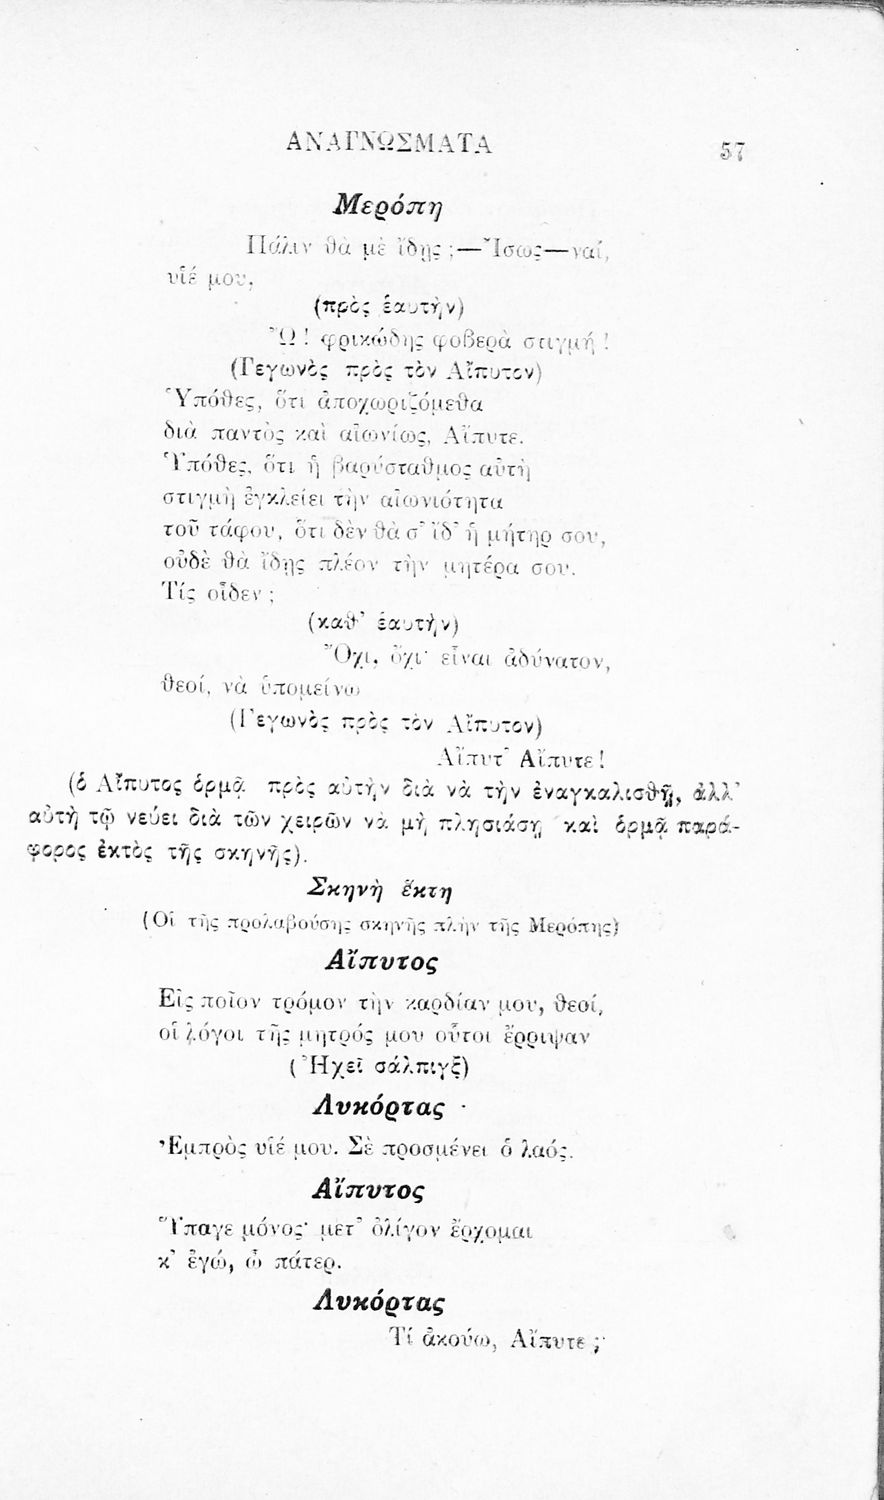 ΑΝΑΓΝΩΣΜΑΤΑ 57
Μερόπη
Πάλιν θὰ μὲ ἴδῃς ;—Ἴσως—ναί,
υἱέ μου,
(πρὸς ἑαυτὴν)
Ὢ ! φρικώδης φοβερὰ στιγμή !
(Γεγωνὸς πρὸς τὸν Αἴπυτον)
Ὑπόθες, ὅτι ἀποχωριζόμεθα
διὰ παντὸς καὶ αἰωνίως, Αἴπυτε.
Ὑπόθες, ὅτι ἡ βαρύσταθμος αὐτὴ
στιγμὴ ἐγκλείει τὴν αἰωνιότητα
τοῦ τάφου, ὅτι δὲν θὰ σ’ ἰδ’ ἡ μήτηρ σου,
οὐδὲ θὰ ἴδῃς πλέον τὴν μητέρα σου.
Τίς οἶδεν ;
(καθ’ ἑαυτὴν)
Ὄχι, ὄχι· εἶναι ἀδύνατον,
θεοί, νὰ ὑπομείνω
(Γεγωνὸς πρὸς τὸν Αἴπυτον)
Αἴπυτ’ Αἴπυτε!
(ὁ Αἴπυτος ὁρμᾷ πρὸς αὐτὴν διὰ νὰ τὴν ἐναγκαλισθῇ, ἀλλ’
αὐτὴ τῷ νεύει διὰ τῶν χειρῶν νὰ μὴ πλησιάσῃ καὶ ὁρμᾷ παρά-
φορος ἐκτὸς τῆς σκηνῆς).
Σκηνὴ ἕκτη
(Οἱ τῆς προλαβούσης σκηνῆς πλὴν τῆς Μερόπης)
Αἴπυτος
Εἰς ποῖον τρόμον τὴν καρδίαν μου, θεοί,
οἱ λόγοι τῆς μητρός μου οὗτοι ἔρριψαν
(Ἠχεῖ σάλπιγξ)
Λυκόρτας
Ἐμπρὸς υἱέ μου. Σὲ προσμένει ὁ λαός.
Αἴπυτος
Ὕπαγε μόνος· μετ’ ὀλίγον ἔρχομαι
κ’ ἐγώ, ὦ πάτερ.
Λυκόρτας
Τί ἀκούω, Αἴπυτε ;